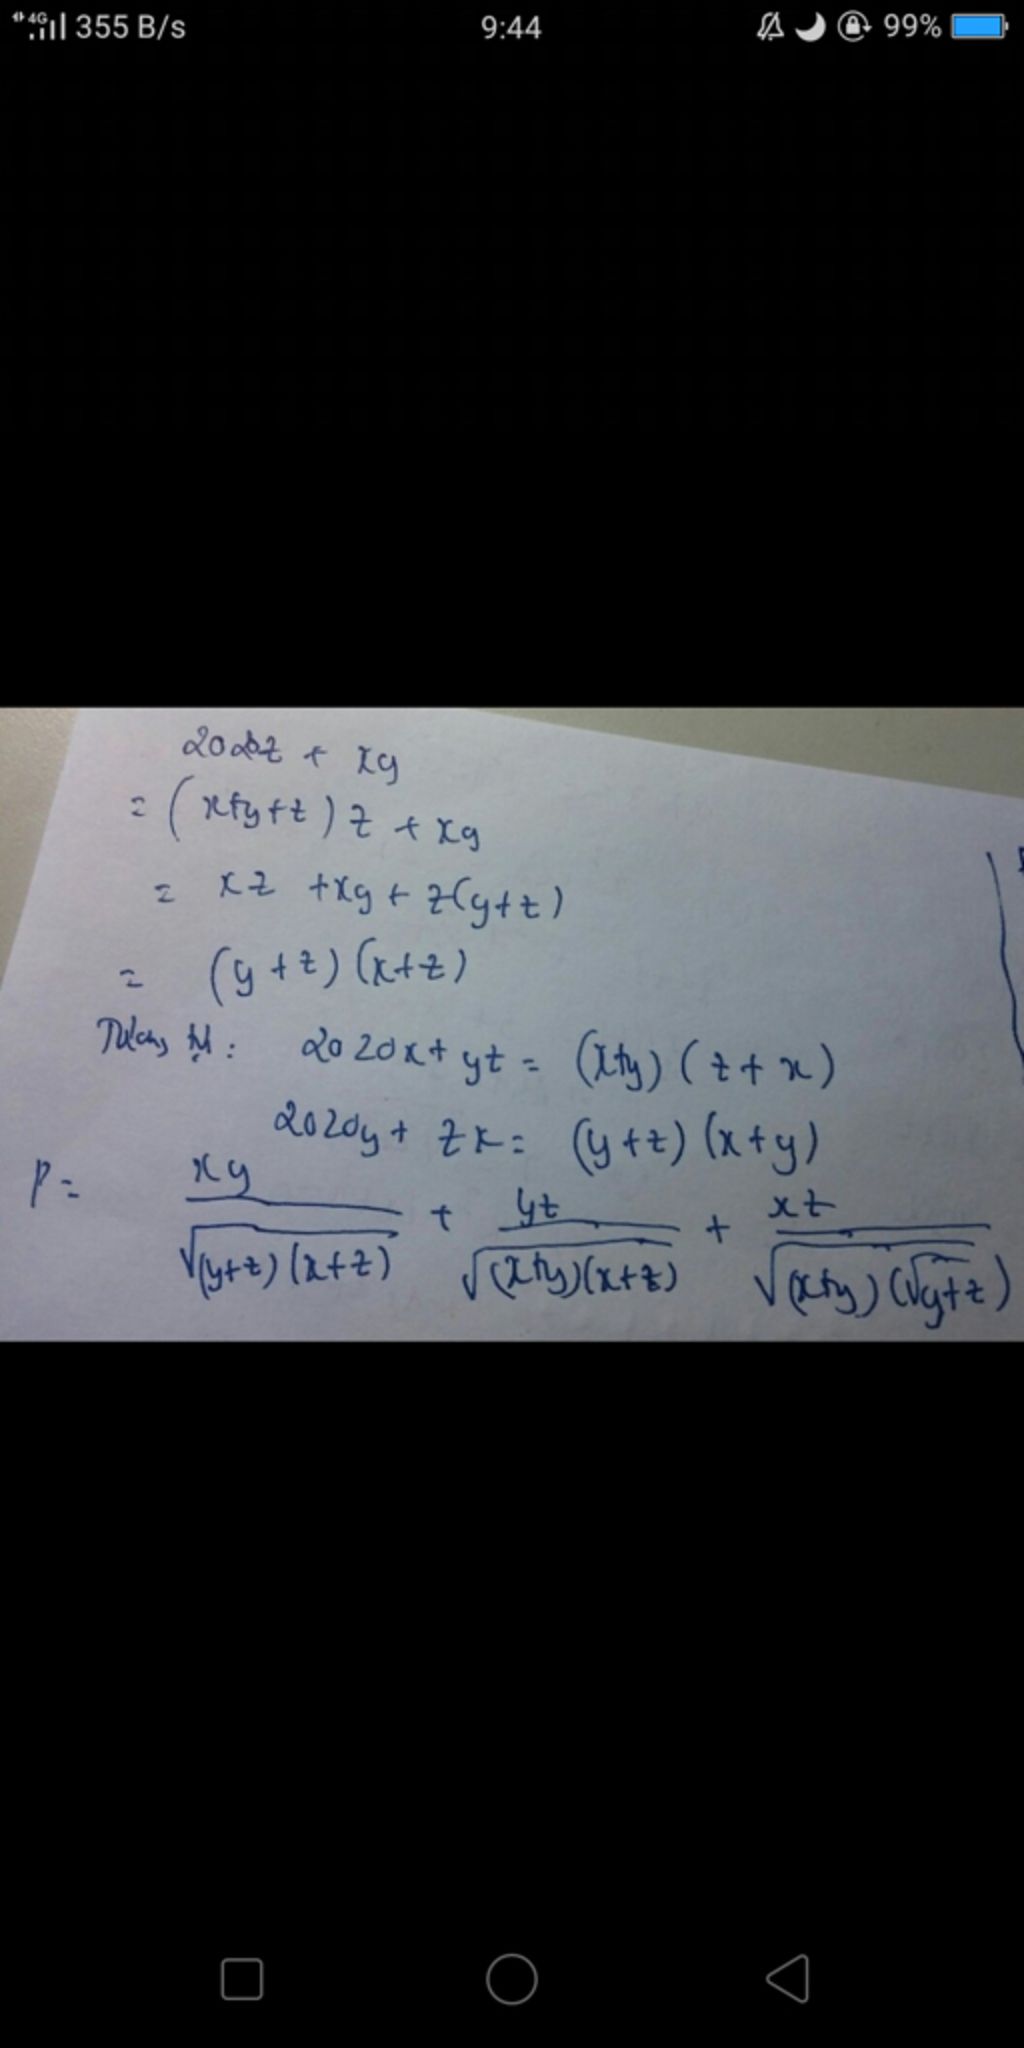 4G 355 B/s 9:44 99%
2020z + xy
= (x+y+z) z + xy
= xz + xy + z(y+z)
= (y+z)(x+z)
Tương tự: 2020x + yz = (x+y)(z+x)
2020y + zx = (y+z)(x+y)
P = xy/√(y+z)(x+z) + yz/√(x+y)(x+z) + xz/√(x+y)(√y+z)